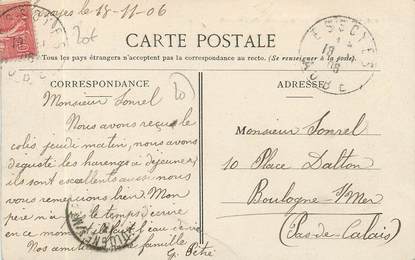 Essoyes le 18-11-06
20f
CARTE POSTALE
Tous les pays étrangers n'acceptent pas la correspondance au recto. (Se renseigner à la poste).
CORRESPONDANCE
ADRESSE
ESSOYES
AUBE
20
Monsieur Sonrel
Nous avons reçu le
colis jeudi matin, nous avons
dégusté les harengs à déjeuner
ils sont excellents aussi nous
vous remercions bien. Mon
père n'a pas le temps d'écrire
en ce moment
Nos amitiés famille
G. Pètre
Monsieur Sonrel
10 Place Dalton
Boulogne s/Mer
(Pas-de-Calais)